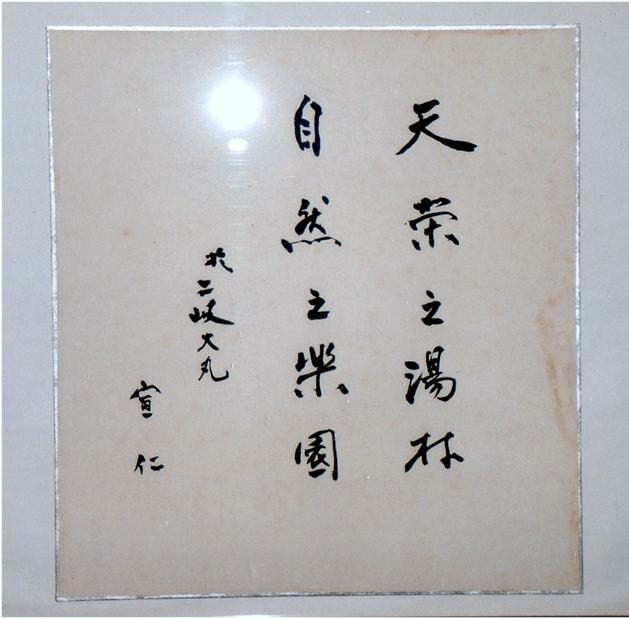 天栄之湯林
自然之楽園
於二岐大丸
宣仁